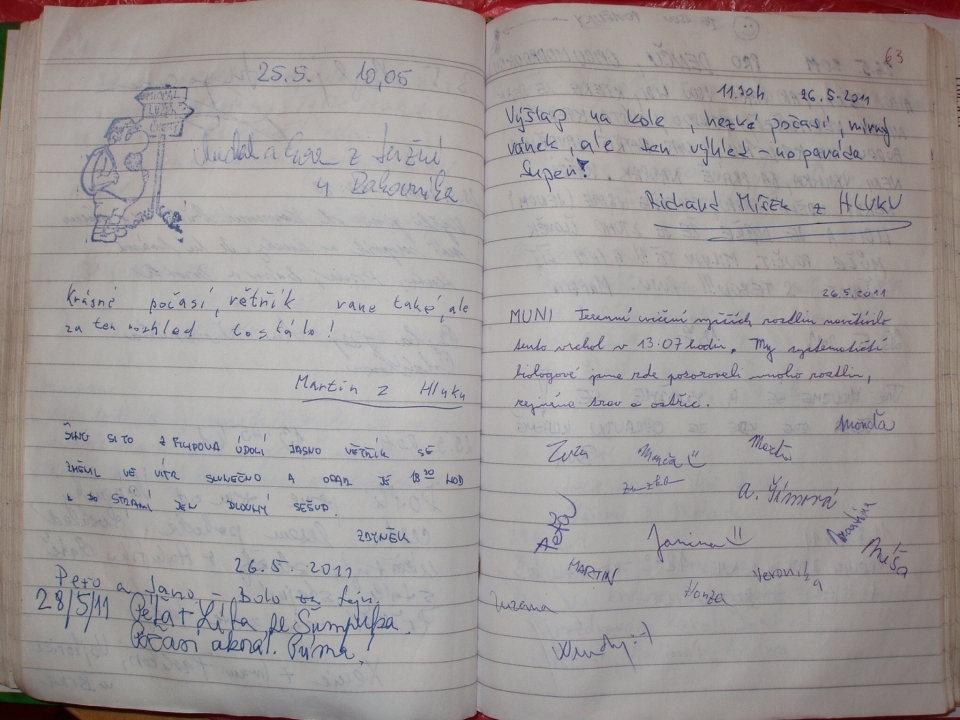 25.5. 10,05
z
u Rakovníka
Krásné počasí, větřík vane také, ale
za ten rozhled to stálo!
Martin z Hluku
SI TO Z FILIPOVA ÚDOLÍ JASNO VĚTŘÍK SE
ZMĚNIL VE VÍTR SLUNEČNO A ODAR JE 18 30 HOD
A DO JEN DLOUHÝ SEŠUP.
ZDYNĚK
26.5.2011
Peťo a Jano – Bolo tu fajn.
28/5/11 Péťa + Líba ze Šumperka.
Počasí akorát. Prima!
63
11.30h 26.5.2011
Výšlap na kole, hezké počasí, mírný
vánek, ale ten výhled – no paráda
Supeň!
Richard Míšek z HLUKU
26.5.2011
MUNI Terenní cvičení vyšších rostlin navštívilo
tento vrchol v 13.07 hodin. My systematičtí
biologové jsme zde pozorovali mnoho rostlin,
zejména trav a ostřic.
Monďa
Zuza Marťa
Zuzka
A. Šímová
Janina
Míša
MARTIN Veronika
Zuzana Honza